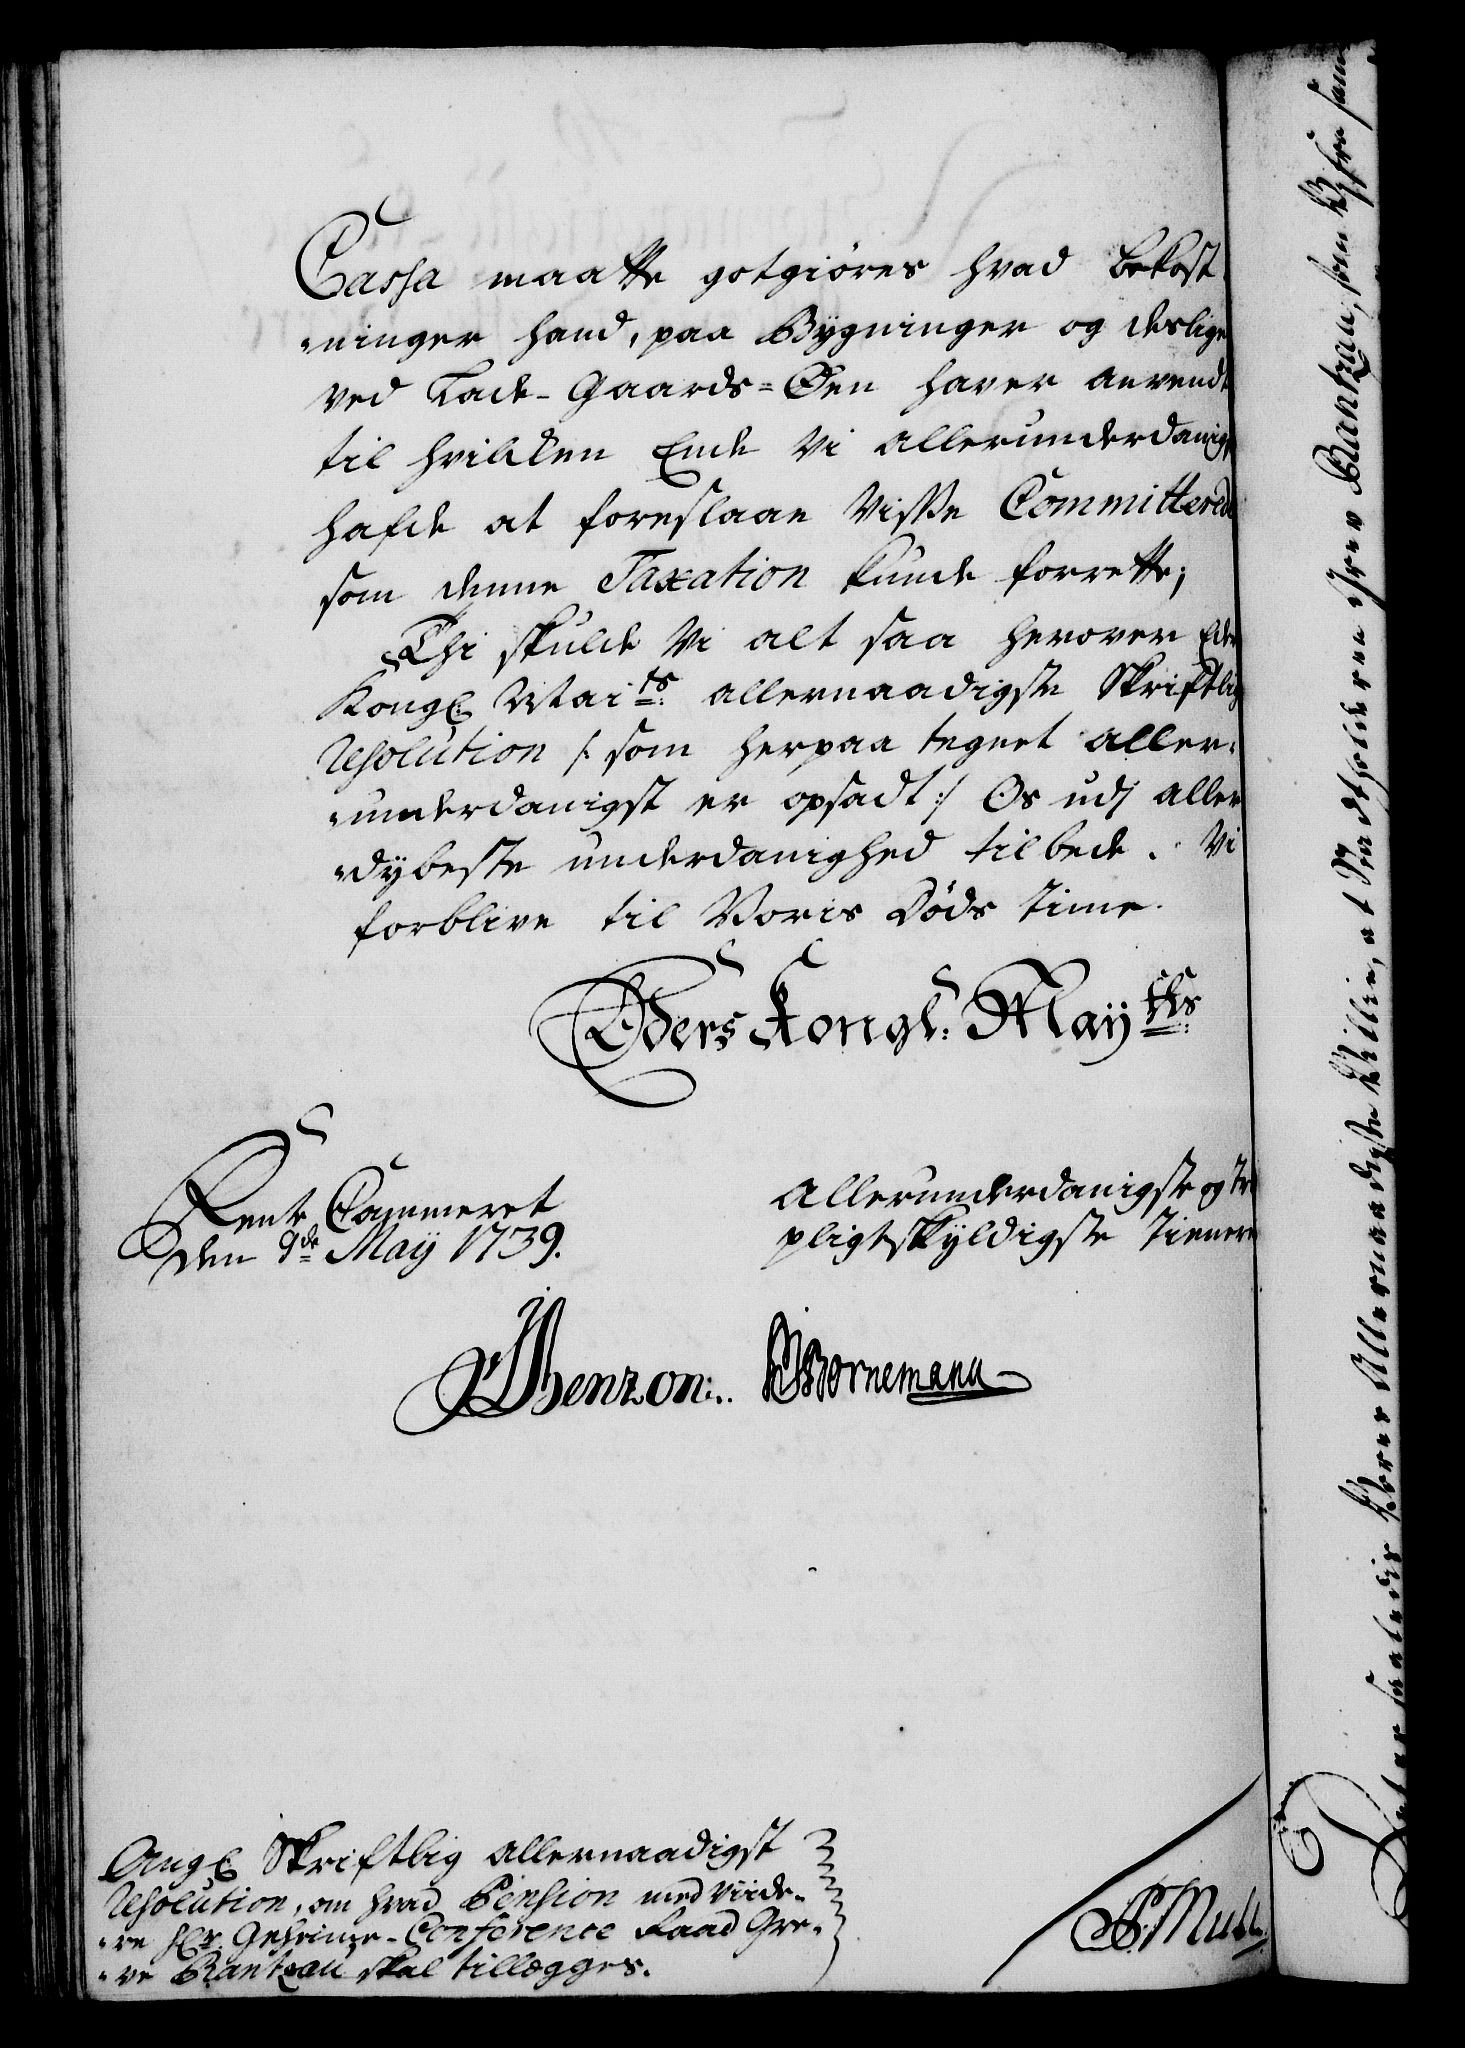 Cassa maatte gotgiöres hvad bekost-
ninger hand, paa Bÿgninger og deslige
ved Lade-Gaards-Öen haver anvendt
til hvilcken Ende Vi allerunderdanigst
hafde at foreslaae Visse Committerede
som denne Taxation kunde forrette;
Thi skulde Vi alt saa herover Eders
Kongl. Maits allernaadigste Skriftlig
Resolution /: som herpaa tegnet aller-
underdanigst er opsadt :/ Os udj aller
dybeste underdanighed tilbede. Vi
forblive til Voris Döds Time.
Eders Kongl: Maÿtts
Rente Cammeret
den 9de Maÿ 1739.
Allerunderdanigste og
pligtskÿldigste Tienere
Benzon
Bornemann
Angl Skriftlig allernaadigst
Resolution, om hvad Pension med viide-
re Hr. Geheime-Conference Raad Gre-
ve Rantzau skal tillægges.
Det er saaledis Vores Allernaadigste Villie, at Stadtholderen Grev Rantzau, som